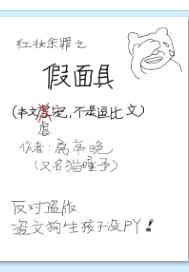 红妆余罪之
假面具
(本文 ,不是逗比文)
虐
作者:
(又名猫 子)
反对盗版
盗文狗生孩子没PY!